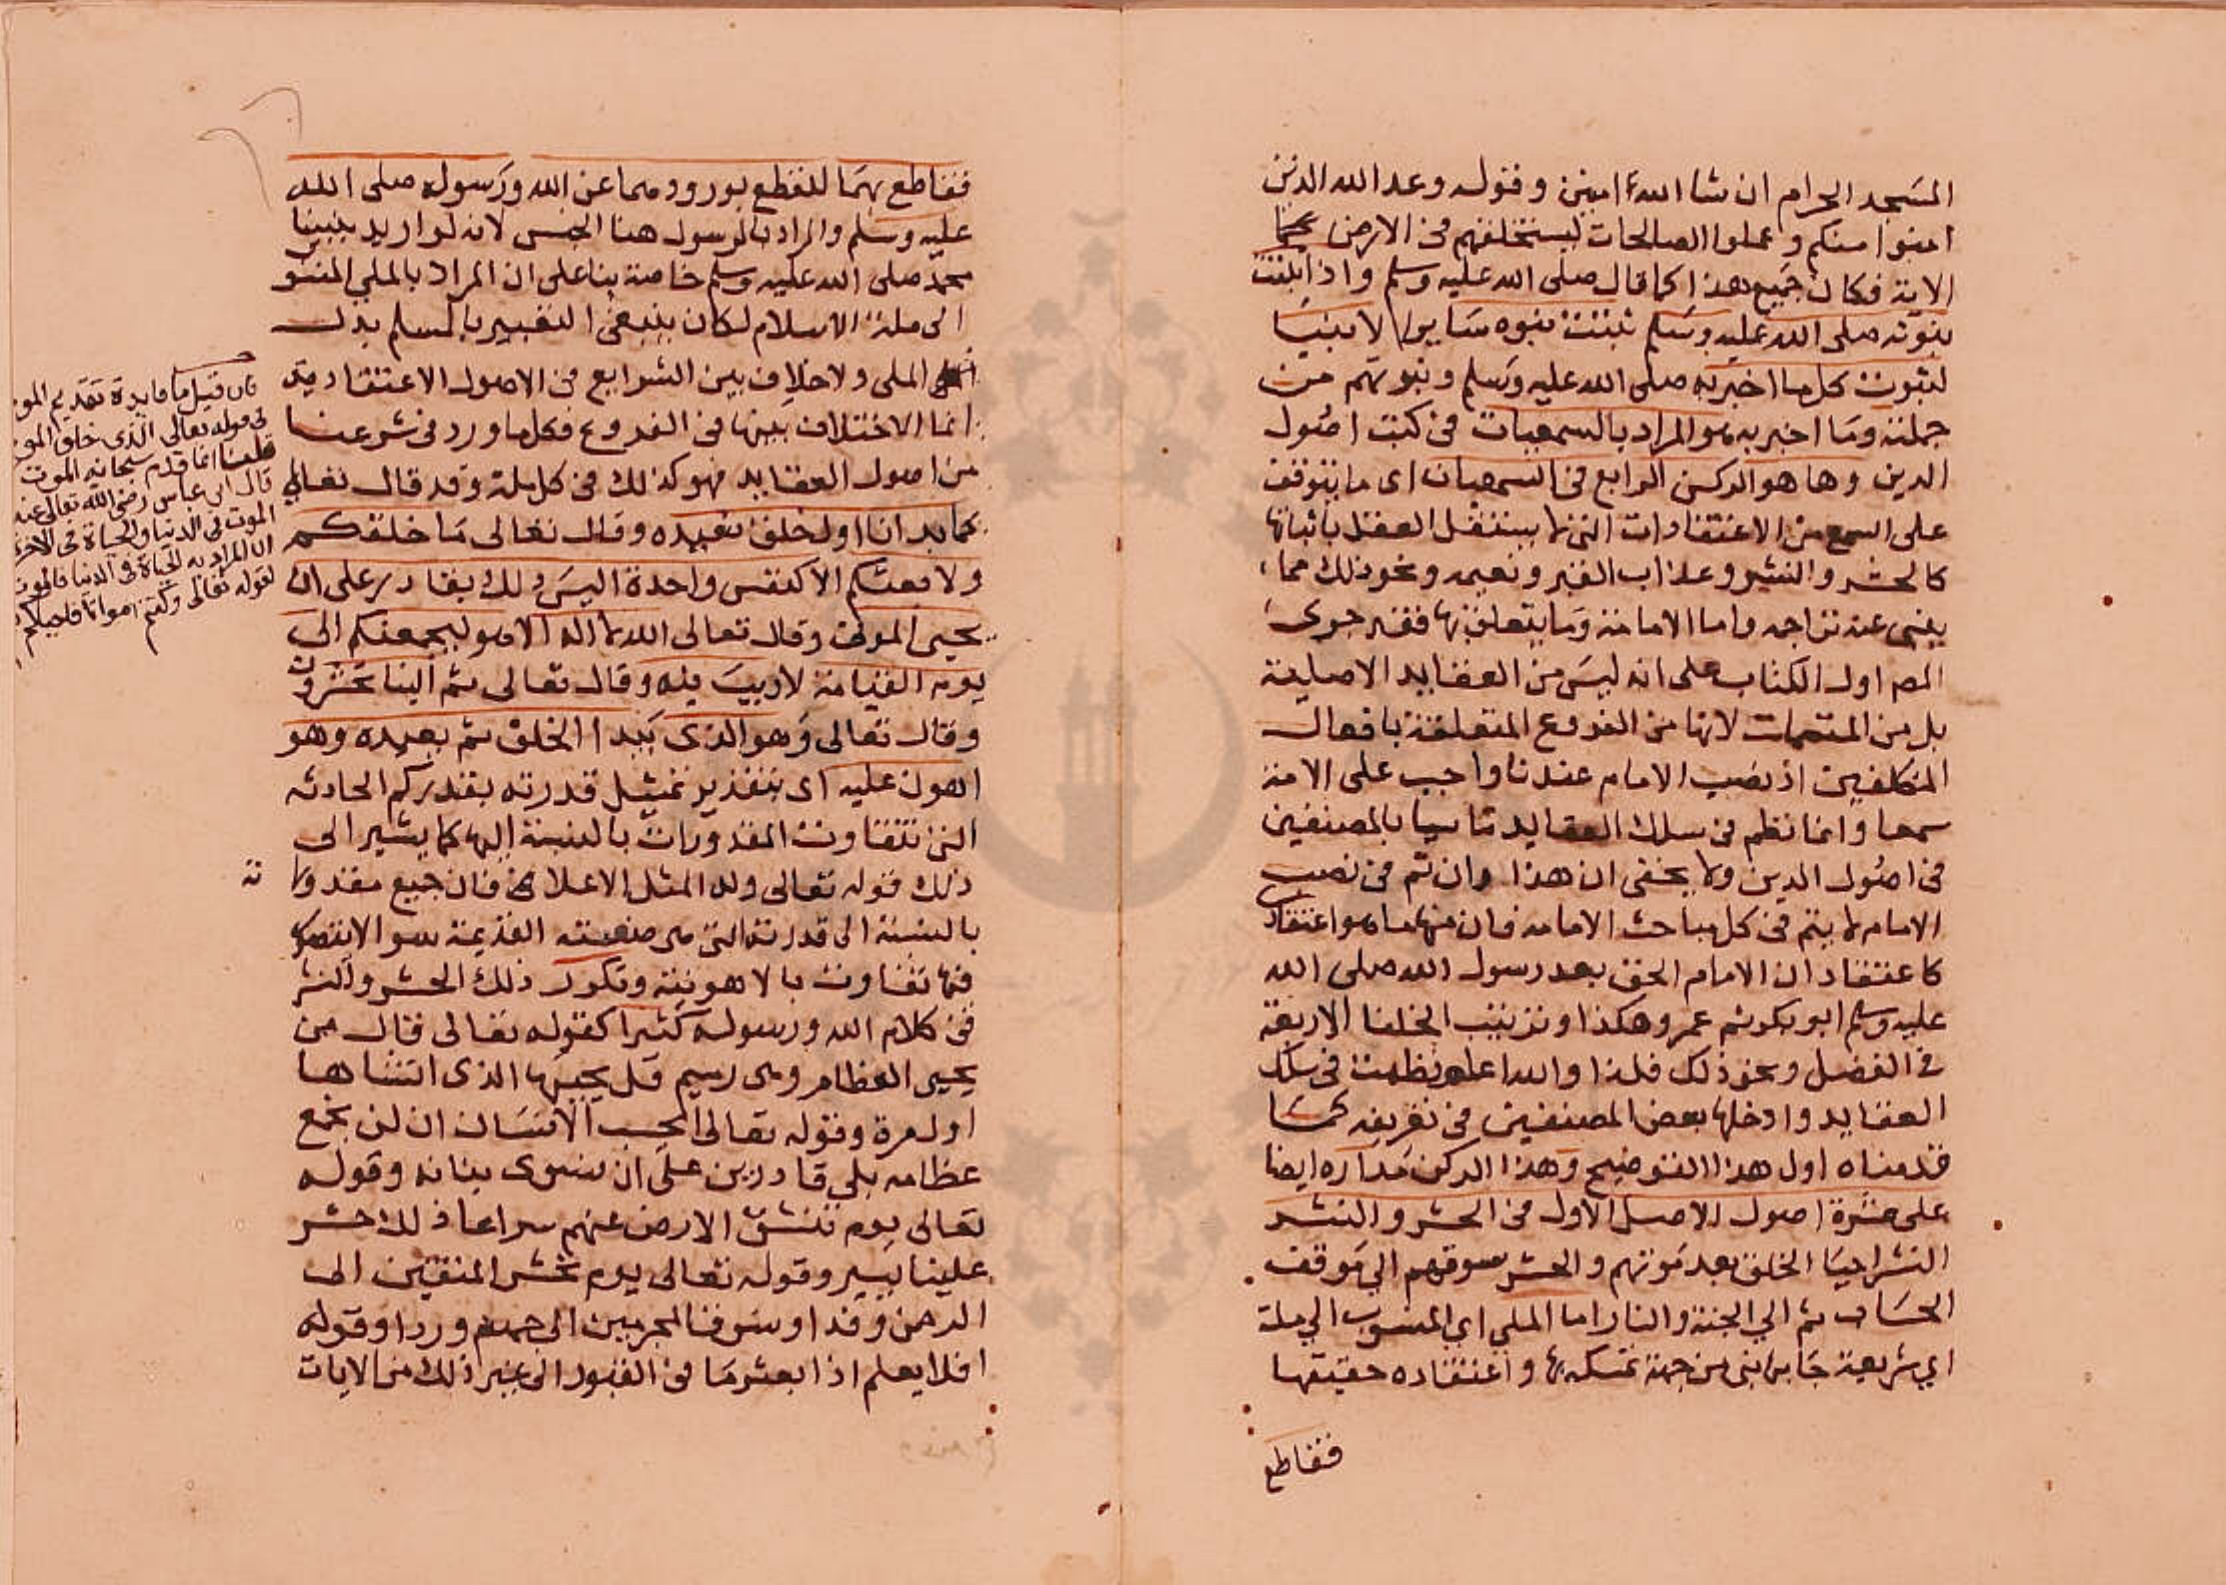 المسجد الحرام ان شا الله امنين وقوله وعد الله الذين
امنوا منكم وعملوا الصالحات ليستخلفنهم في الارض
الاية فكان جميع هذا كما قال صلى الله عليه وسلم واذا ثبتت
نبوته صلى الله عليه وسلم ثبتت نبوه ساير الانبيا
لثبوت كل ما اخبر به صلى الله عليه وسلم ونبوتهم من
جملته وما اخبر به هو المراد بالسمعيات في كتب اصول
الدين وها هو الركن الرابع في السمعيات اى ما يتوقف
على السمع من الاعتقادات التي لا يستقل العقل باثباتها
كالحشر والنشر وعذاب القبر ونعيمه ونحو ذلك مما
يغني عنه تراجمه واما الامامة وما يتعلق بها فقد جرى
المص اول الكتاب على انه ليس من العقايد الاصلية
بل من المتممات لانها من الفروع المتعلقة بافعال
المكلفين اذ نصب الامام عندنا واجب على الامة
سمعا وانما نظم في سلك العقايد تاسيا بالمصنفين
في اصول الدين ولا يخفى ان هذا وان تم في نصب
الامام لا يتم في كل مباحث الامامه فان منها ما هو اعتقاد
كاعتقاد ان الامام الحق بعد رسول الله صلى الله
عليه وسلم ابو بكر ثم عمر وهكذا وترتيب الخلفا الاربعة
في الفضل ونحو ذلك فلذا والله اعلم نظمت في سلك
العقايد وادخلها بعض المصنفين في تعريفه كما
قدمناه اول هذا التوضيح وهذا الركن مداره ايضا
على عشرة اصول الاصل الاول في الحشر والنشر
النشر احيا الخلق بعد موتهم والحشر سوقهم الي موقف
الحساب ثم الي الجنة والنار اما الملي اي المنسوب الي ملة
اي شريعة جا بها نبى من جهة تمسكه بها واعتقاده حقيقتها
فقاطع
فقاطع بهما للقطع بورودهما عن الله ورسوله صلى الله
عليه وسلم والمراد بالرسول هنا الجنس لانه لو اريد نبينا
محمد صلى الله عليه وسلم خاصة بنا على ان المراد بالملي المنسو
الى ملة الاسلام لكان ينبغى التعبير بالمسلم بدل
الملى ولا خلاف بين الشرايع في الاصول الاعتقادية
انما الاختلاف بينها في الفروع فكل ما ورد في شرعنا
من اصول العقايد فهو كذلك في كل ملة وقد قال تعالى
كما بدانا اول خلق نعيده وقال تعالى ما خلقكم
ولا بعثكم الا كنفس واحدة اليس ذلك بقادر على ان
يحيى الموتى وقال تعالى الله لا اله الا هو ليجمعنكم الى
يوم القيامة لا ريب فيه وقال تعالى ثم الينا تحشرون
وقال تعالى وهو الذى يبدا الخلق ثم يعيده وهو
اهون عليه اى بتقدير تمثيل قدرته بقدركم الحادثه
التى تتفاوت المقدورات بالنسبة اليها كما يشير الى
ذلك قوله تعالى وله المثل الاعلا فان جميع مقدورا
ته
بالنسبة الى قدرته التى هى صفته القديمة سوا لا يتصور
فيها تفاوت بالاهونية وتكرر ذلك الحشر والنشر
في كلام الله ورسوله كثيرا كقوله تعالى قال من
يحيى العظام وهى رميم قل يحييها الذى انشاها
اول مرة وقوله تعالى ايحسب الانسان ان لن نجمع
عظامه بلي قادرين على ان نسوى بنانه وقوله
تعالى يوم تشقق الارض عنهم سراعا ذلك حشر
علينا يسير وقوله تعالى يوم نحشر المتقين الى
الرحمن وفدا ونسوق المجرمين الى جهنم وردا وقوله
افلا يعلم اذا بعثر ما في القبور الى غير ذلك من الايات
فان قيل ما فايدة تقديم المو
في قوله تعالى الذى خلق المو
قلنا انما قدم سبحانه الموت
قال ابن عباس رضى الله تعالى عنه
الموت في الدنيا والحياة في الاخرة
ان المراد به الحياة في الدنيا فالموت
لقوله تعالى وكنتم امواتا فاحياكم